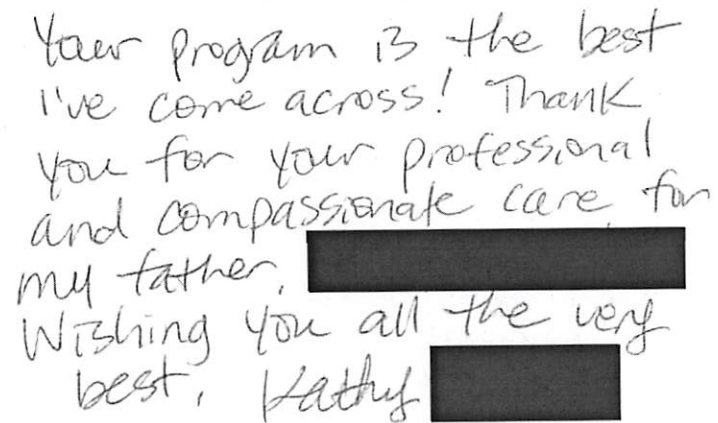 Your program is the best
I've come across! Thank
you for your professional
and compassionate care for
my father,
Wishing you all the very
best, Kathy